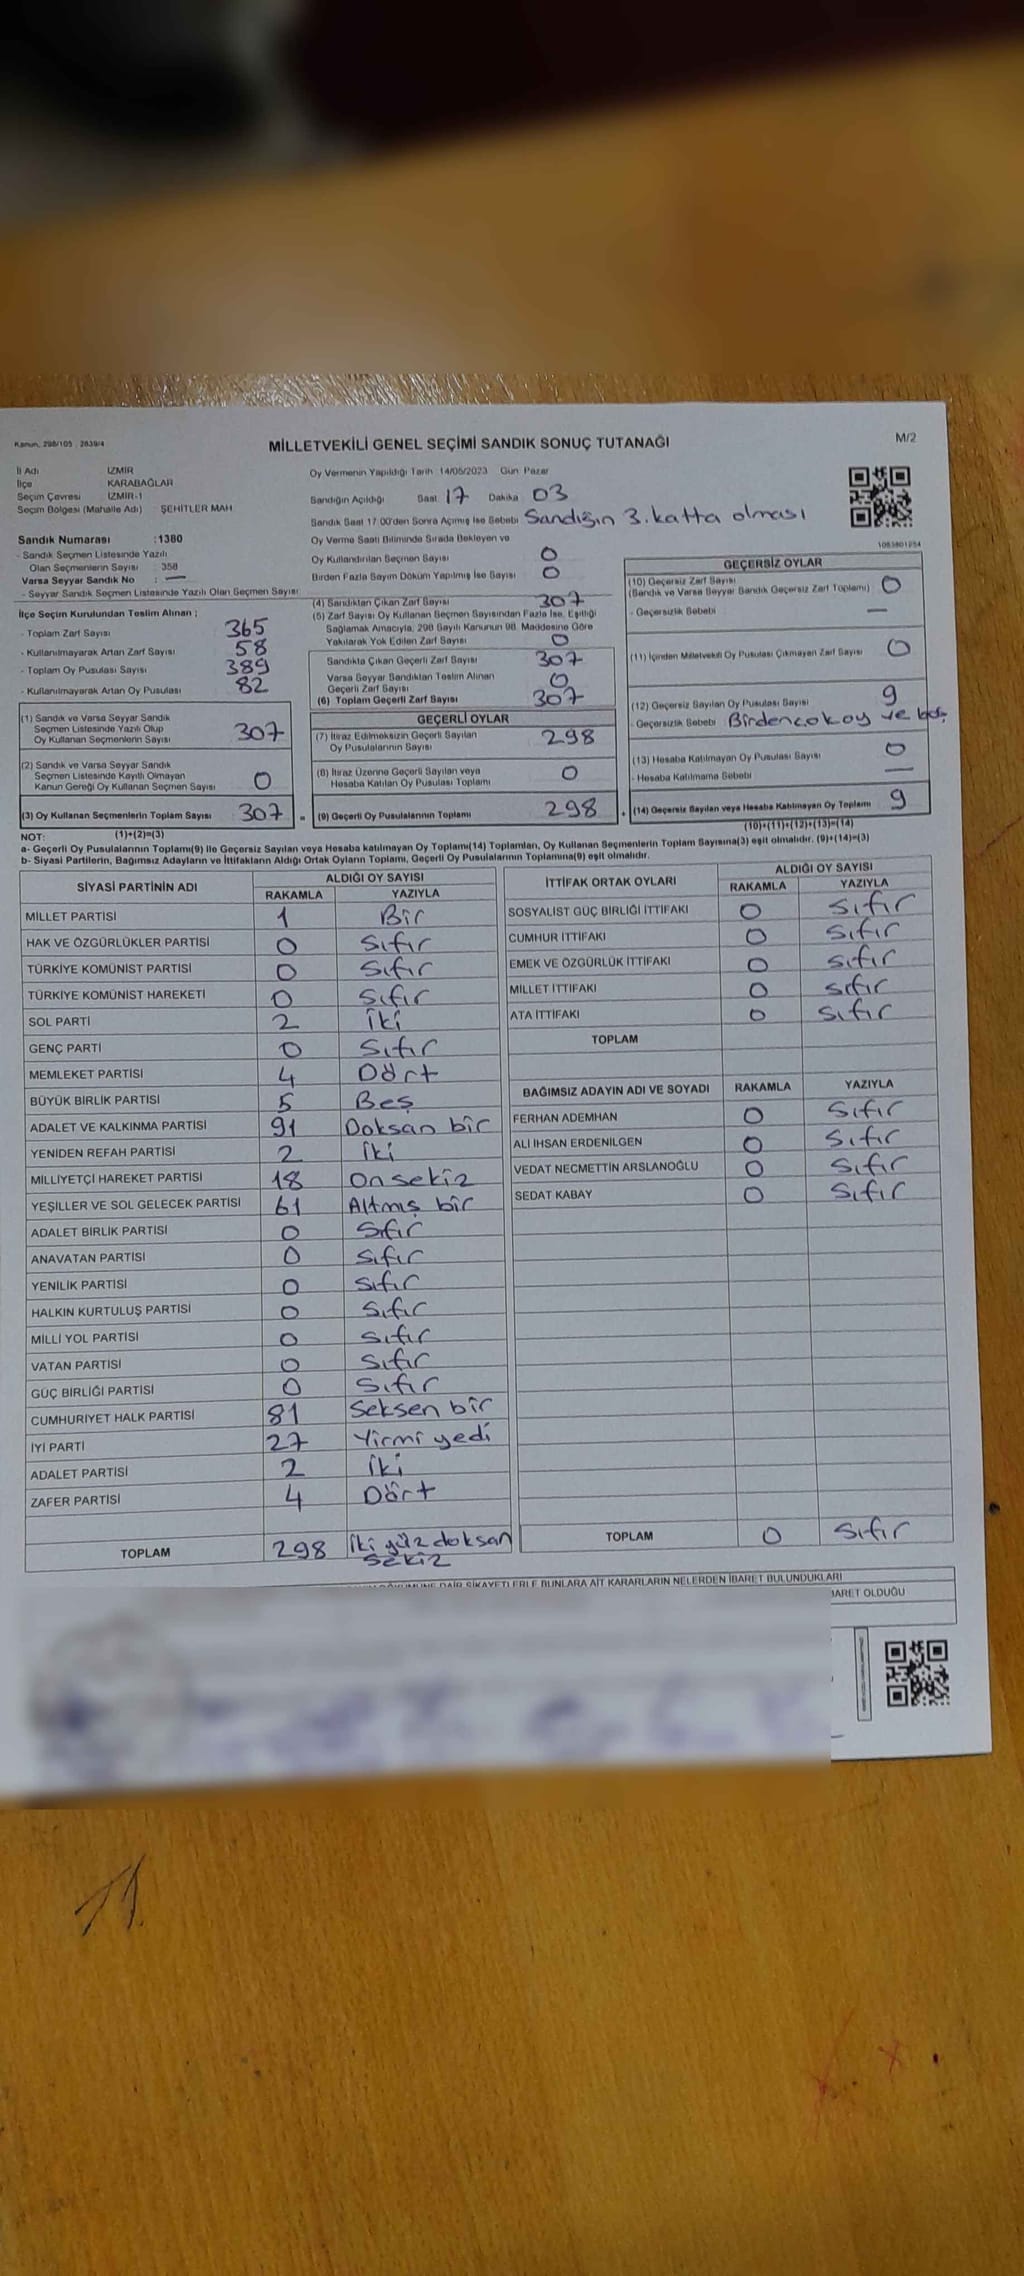 Kanun, 298/105 : 2839/4
MİLLETVEKİLİ GENEL SEÇİMİ SANDIK SONUÇ TUTANAĞI
M/2
İl Adı İZMİR
İlçe KARABAĞLAR
Seçim Çevresi İZMİR-1
Seçim Bölgesi (Mahalle Adı) ŞEHİTLER MAH.
Oy Vermenin Yapıldığı Tarih 14/05/2023 Gün Pazar
Sandığın Açıldığı Saat 17 Dakika 03
Sandık Saat 17.00'den Sonra Açılmış İse Sebebi Sandığın 3. katta olması
Sandık Numarası :1380
- Sandık Seçmen Listesinde Yazılı
Olan Seçmenlerin Sayısı : 358
Varsa Seyyar Sandık No : —
- Seyyar Sandık Seçmen Listesinde Yazılı Olan Seçmen Sayısı
Oy Verme Saati Bitiminde Sırada Bekleyen ve
Oy Kullandırılan Seçmen Sayısı 0
Birden Fazla Sayım Döküm Yapılmış İse Sayısı 0
İlçe Seçim Kurulundan Teslim Alınan ;
- Toplam Zarf Sayısı 365
- Kullanılmayarak Artan Zarf Sayısı 58
- Toplam Oy Pusulası Sayısı 389
- Kullanılmayarak Artan Oy Pusulası 82
(1) Sandık ve Varsa Seyyar Sandık
Seçmen Listesinde Yazılı Olup
Oy Kullanan Seçmenlerin Sayısı 307
(2) Sandık ve Varsa Seyyar Sandık
Seçmen Listesinde Kayıtlı Olmayan
Kanun Gereği Oy Kullanan Seçmen Sayısı 0
(3) Oy Kullanan Seçmenlerin Toplam Sayısı 307
(4) Sandıktan Çıkan Zarf Sayısı 307
(5) Zarf Sayısı Oy Kullanan Seçmen Sayısından Fazla İse, Eşitliği
Sağlamak Amacıyla, 298 Sayılı Kanunun 98. Maddesine Göre
Yakılarak Yok Edilen Zarf Sayısı 0
Sandıkta Çıkan Geçerli Zarf Sayısı 307
Varsa Seyyar Sandıktan Teslim Alınan
Geçerli Zarf Sayısı 0
(6) Toplam Geçerli Zarf Sayısı 307
GEÇERLİ OYLAR
(7) İtiraz Edilmeksizin Geçerli Sayılan
Oy Pusulalarının Sayısı 298
(8) İtiraz Üzerine Geçerli Sayılan veya
Hesaba Katılan Oy Pusulası Toplamı 0
= (9) Geçerli Oy Pusulalarının Toplamı 298 +
1083801254
GEÇERSİZ OYLAR
(10) Geçersiz Zarf Sayısı
(Sandık ve Varsa Seyyar Sandık Geçersiz Zarf Toplamı) 0
- Geçersizlik Sebebi —
(11) İçinden Milletvekili Oy Pusulası Çıkmayan Zarf Sayısı 0
(12) Geçersiz Sayılan Oy Pusulası Sayısı 9
- Geçersizlik Sebebi Birden çok oy ve boş
(13) Hesaba Katılmayan Oy Pusulası Sayısı 0
- Hesaba Katılmama Sebebi —
(14) Geçersiz Sayılan veya Hesaba Katılmayan Oy Toplamı 9
NOT: (1)+(2)=(3) (10)+(11)+(12)+(13)=(14)
a- Geçerli Oy Pusulalarının Toplamı(9) ile Geçersiz Sayılan veya Hesaba katılmayan Oy Toplamı(14) Toplamları, Oy Kullanan Seçmenlerin Toplam Sayısına(3) eşit olmalıdır. (9)+(14)=(3)
b- Siyasi Partilerin, Bağımsız Adayların ve İttifakların Aldığı Ortak Oyların Toplamı, Geçerli Oy Pusulalarının Toplamına(9) eşit olmalıdır.
SİYASİ PARTİNİN ADI ALDIĞI OY SAYISI
RAKAMLA YAZIYLA
MİLLET PARTİSİ 1 Bir
HAK VE ÖZGÜRLÜKLER PARTİSİ 0 Sıfır
TÜRKİYE KOMÜNİST PARTİSİ 0 Sıfır
TÜRKİYE KOMÜNİST HAREKETİ 0 Sıfır
SOL PARTİ 2 İki
GENÇ PARTİ 0 Sıfır
MEMLEKET PARTİSİ 4 Dört
BÜYÜK BİRLİK PARTİSİ 5 Beş
ADALET VE KALKINMA PARTİSİ 91 Doksan bir
YENİDEN REFAH PARTİSİ 2 İki
MİLLİYETÇİ HAREKET PARTİSİ 18 Onsekiz
YEŞİLLER VE SOL GELECEK PARTİSİ 61 Altmış bir
ADALET BİRLİK PARTİSİ 0 Sıfır
ANAVATAN PARTİSİ 0 Sıfır
YENİLİK PARTİSİ 0 Sıfır
HALKIN KURTULUŞ PARTİSİ 0 Sıfır
MİLLİ YOL PARTİSİ 0 Sıfır
VATAN PARTİSİ 0 Sıfır
GÜÇ BİRLİĞİ PARTİSİ 0 Sıfır
CUMHURİYET HALK PARTİSİ 81 Seksen bir
İYİ PARTİ 27 Yirmi yedi
ADALET PARTİSİ 2 İki
ZAFER PARTİSİ 4 Dört
TOPLAM 298 İki yüz doksan
sekiz
İTTİFAK ORTAK OYLARI ALDIĞI OY SAYISI
RAKAMLA YAZIYLA
SOSYALİST GÜÇ BİRLİĞİ İTTİFAKI 0 Sıfır
CUMHUR İTTİFAKI 0 Sıfır
EMEK VE ÖZGÜRLÜK İTTİFAKI 0 Sıfır
MİLLET İTTİFAKI 0 Sıfır
ATA İTTİFAKI 0 Sıfır
TOPLAM
BAĞIMSIZ ADAYIN ADI VE SOYADI RAKAMLA YAZIYLA
FERHAN ADEMHAN 0 Sıfır
ALİ İHSAN ERDENİLGEN 0 Sıfır
VEDAT NECMETTİN ARSLANOĞLU 0 Sıfır
SEDAT KABAY 0 Sıfır
TOPLAM 0 Sıfır
DAİR ŞİKAYETLERLE BUNLARA AİT KARARLARIN NELERDEN İBARET BULUNDUKLARI
OLDUĞU